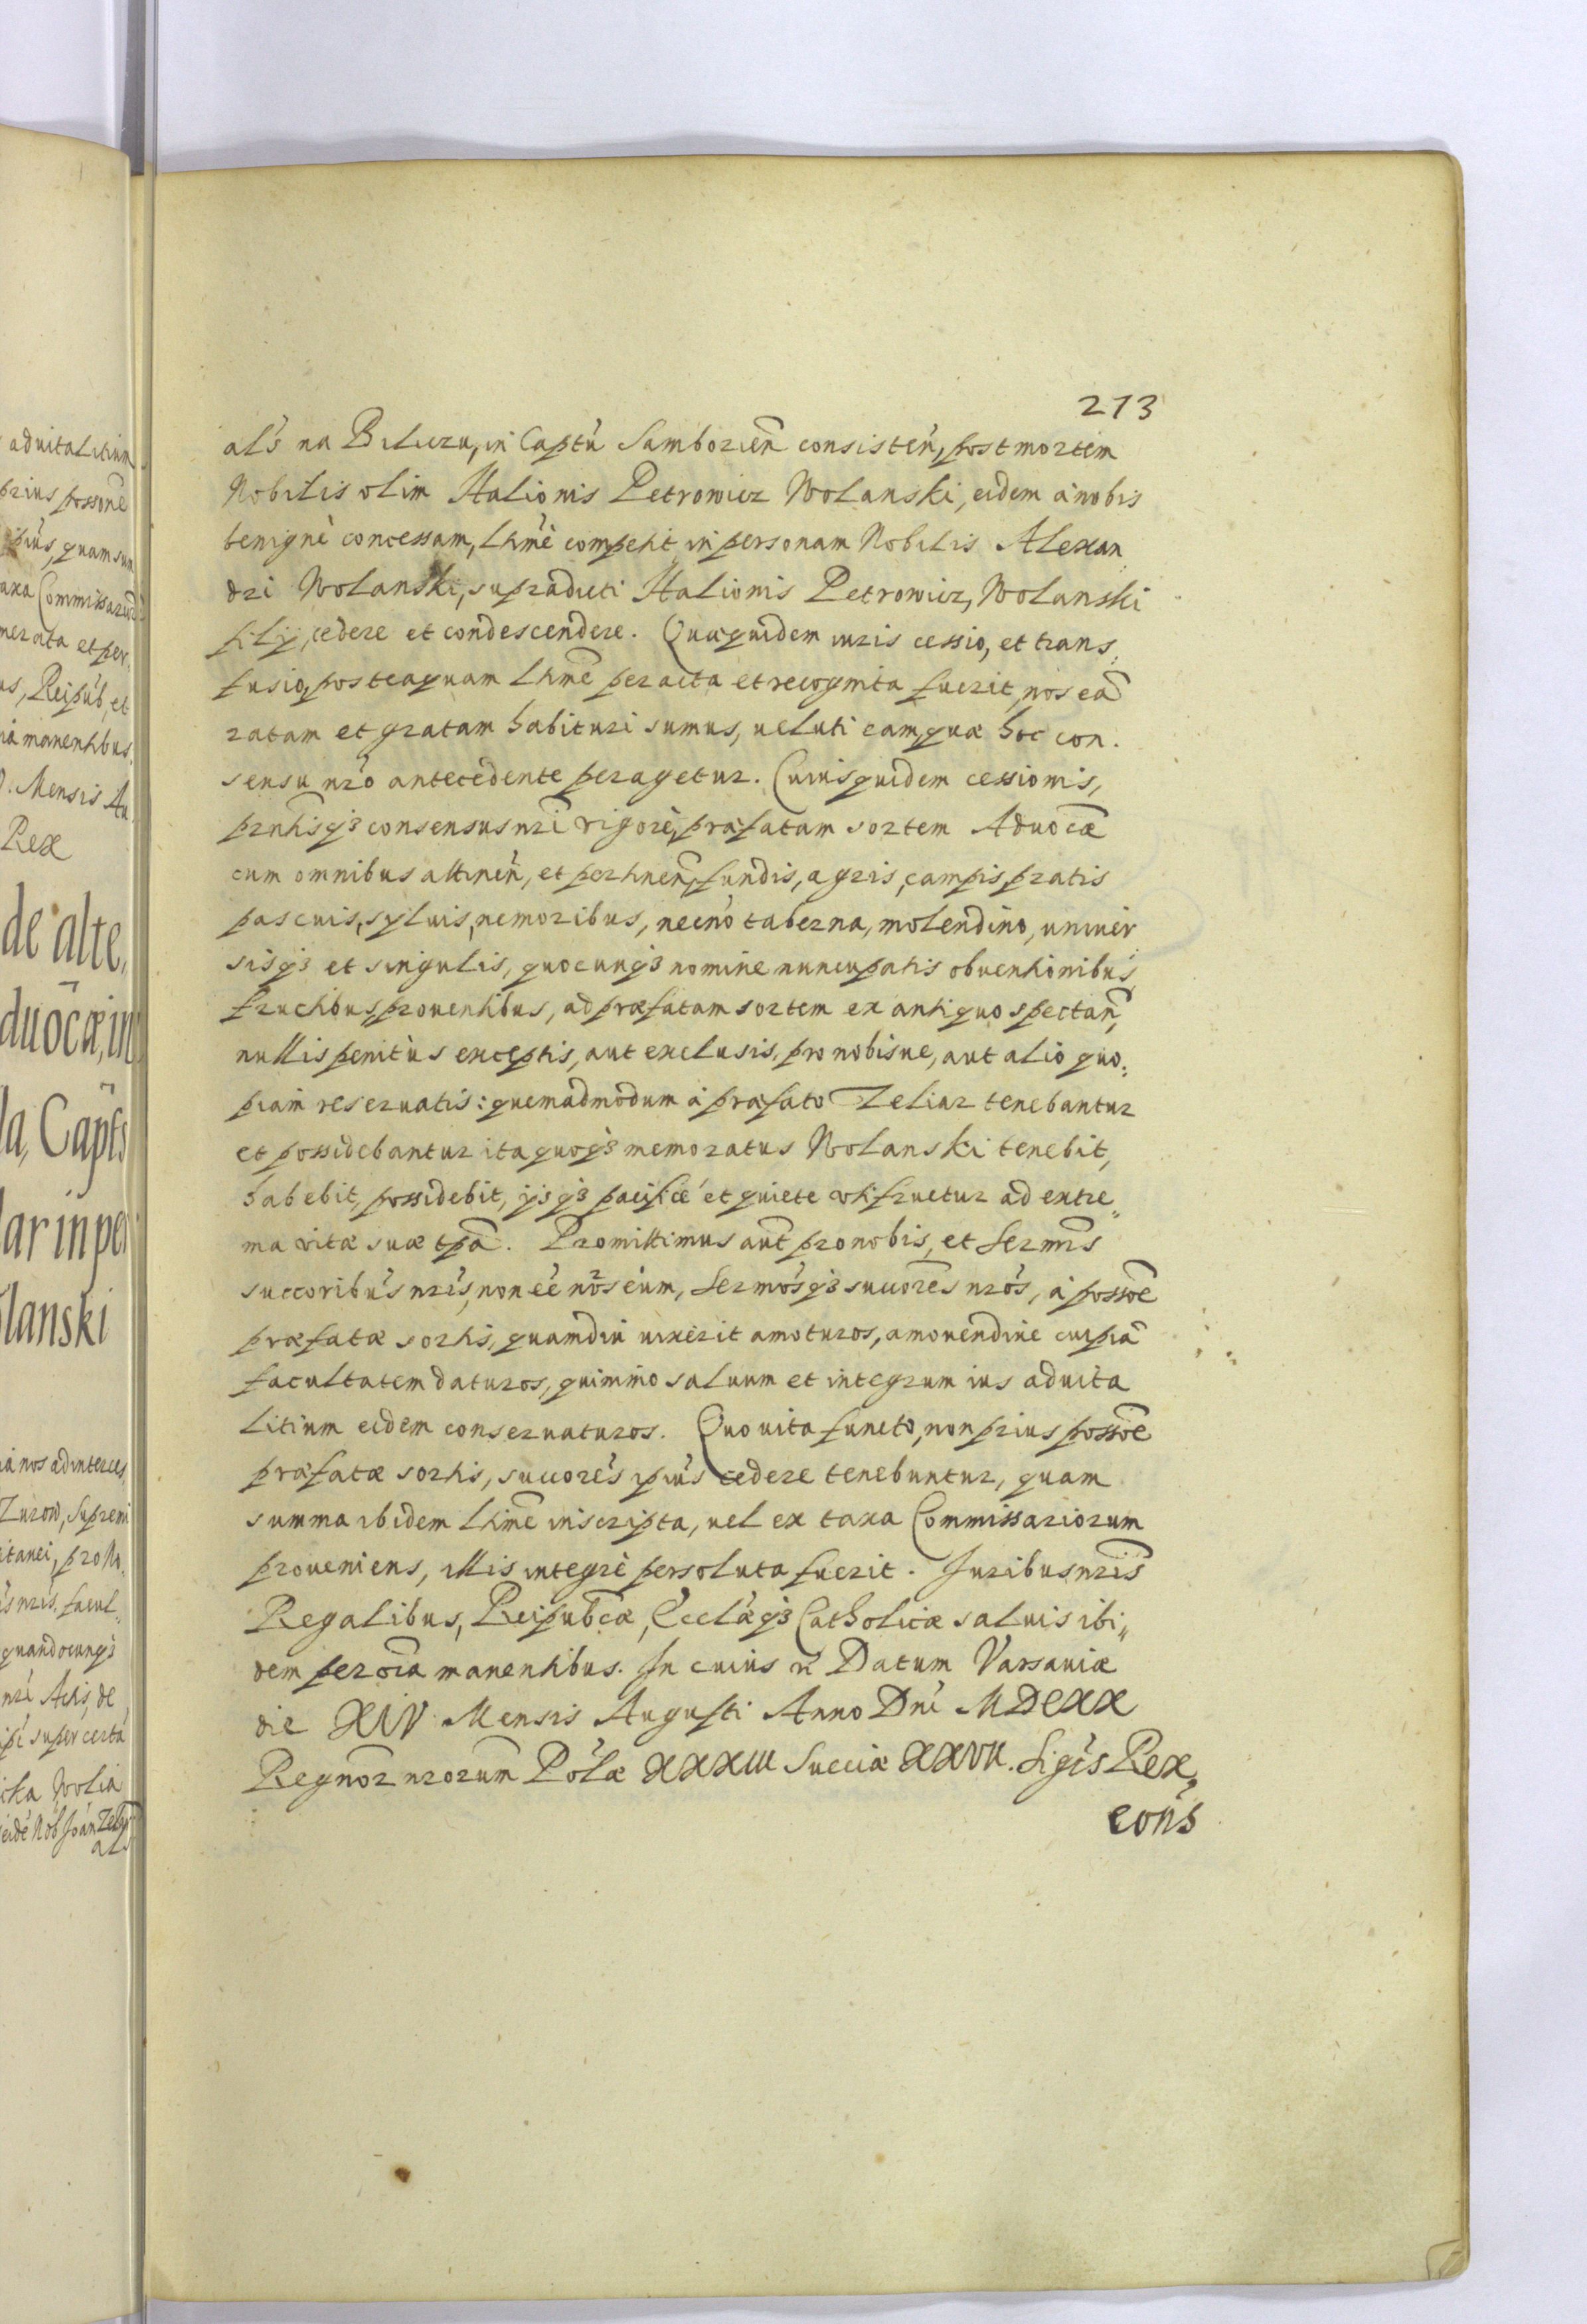 213
als na Biliczu, in Captu Samborien consisten, post mortem
Nobilis olim Italionis Petrowicz Wolanski, eidem a nobis
benigne concessam, lhme competit, in personam Nobilis Alexan
dri Wolanski, supradicti Italionis Petrowicz, Wolanski
filij, cedere et condescendere. Quaequidem iuris cessio, et trans,
fusio, posteaquam lhme peracta et recognita fuerit, nos eā
ratam et gratam habituri sumus, veluti eam, quae hoc con.
sensu nro antecedente peragetur. Cuiusquidem cessionis,
prntisq3 consensus nri vigore, praefatam sortem Aduocae
cum omnibus attinen, et pertinen, fundis, agris, campis, pratis
pascuis, syluis, nemoribus, necno taberna, molendino, univer
sisq3 et singulis, quocunq3 nomine nuncupatis obuentionibus
fructibus, prouentibus, ad praefatam sortem ex antiquo spectan,
nullis penitus exceptis, aut exclusis, pro nobisue, aut alio quo:
piam reseruatis: quemadmodum a praefato Zeliar tenebantur
et possidebantur ita quoq3 memoratus Wolanski tenebit,
habebit, possidebit, ijsq3 pacifice et quiete vtifruetur ad extre,,
ma vitae suae tpā. Promittimus aut pro nobis, et Sermis
succoribus nris, non eē nos eum, Sermosq3 succores nros, a possōe
praefatae sortis, quamdiu uixerit amoturos, amouendiue cuipiā
facultatem daturos, quimmo saluum et integrum ius aduita
litium eidem conseruaturos. Quo vita functo, non prius possōe
praefatae sortis, succores ipius cedere tenebuntur, quam
summa ibidem lhme inscripta, uel ex taxa Commissariorum
proueniens, illis integre persoluta fuerit. Juribus nris
Regalibus, Reipubcae, Ecclaeq3 Catholicae saluis ibi,,
dem per oīa manentibus. In cuius r Datum Varsauiae
die XIV Mensis Augusti Anno Dni MDCXX
Regnor nrorum Polae XXXIII Sueciae XXVII. Sigis Rex,
cons